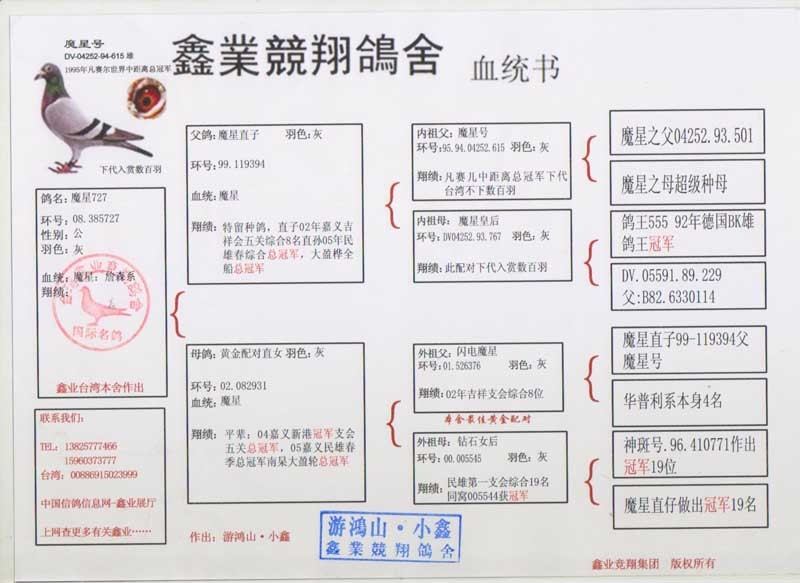 魔星号
DV-04252-94-615 雄
1995年凡赛尔世界中距离总冠军
鑫業競翔鴿舍
血统书
下代入赏数百羽
鸽名：魔星727
环号：08.385727
性别：公
羽色：灰
血统：魔星：詹森系
翔绩：
国际名鸽
鑫业台湾本舍作出
联系我们：
TEL：13825777466
15960373777
台湾：00886915023999
中国信鸽信息网-鑫业展厅
上网查更多有关鑫业……
父鸽：魔星直子 羽色：灰
环号：99.119394
血统：魔星
翔绩：特留种鸽，直子02年嘉义吉
祥会五关综合8名直孙05年民
雄春综合总冠军，大盈桦全
船总冠军
母鸽：黄金配对直女 羽色：灰
环号：02.082931
血统：魔星
翔绩：平辈：04嘉义新港冠军支会
五关总冠军，05嘉义民雄春
季总冠军南杲大盈轮总冠军
作出：游鸿山·小鑫
内祖父：魔星号
环号：95.94.04252.615 羽色：灰
翔绩：凡赛儿中距离总冠军下代
台湾不下数百羽
内祖母： 魔星皇后
环号：DV04252.93.767 羽色：灰
翔绩：此配对下代入赏数百羽
外祖父：闪电魔星
环号：01.526376 羽色：灰
翔绩：02年吉祥支会综合8位
本舍最佳黄金配对
外祖母：钻石女后
环号：00.005545 羽色：灰
翔绩：民雄第一支会综合19名
同窝005544获冠军
游鴻山·小鑫
鑫業競翔鴿舍
魔星之父04252.93.501
魔星之母超级种母
鸽王555 92年德国BK雄
鸽王冠军
DV.05591.89.229
父：B82.6330114
魔星直子99-119394父
魔星号
华普利系本身4名
神斑号.96.410771作出
冠军19位
魔星直仔做出冠军19名
鑫业竞翔集团 版权所有